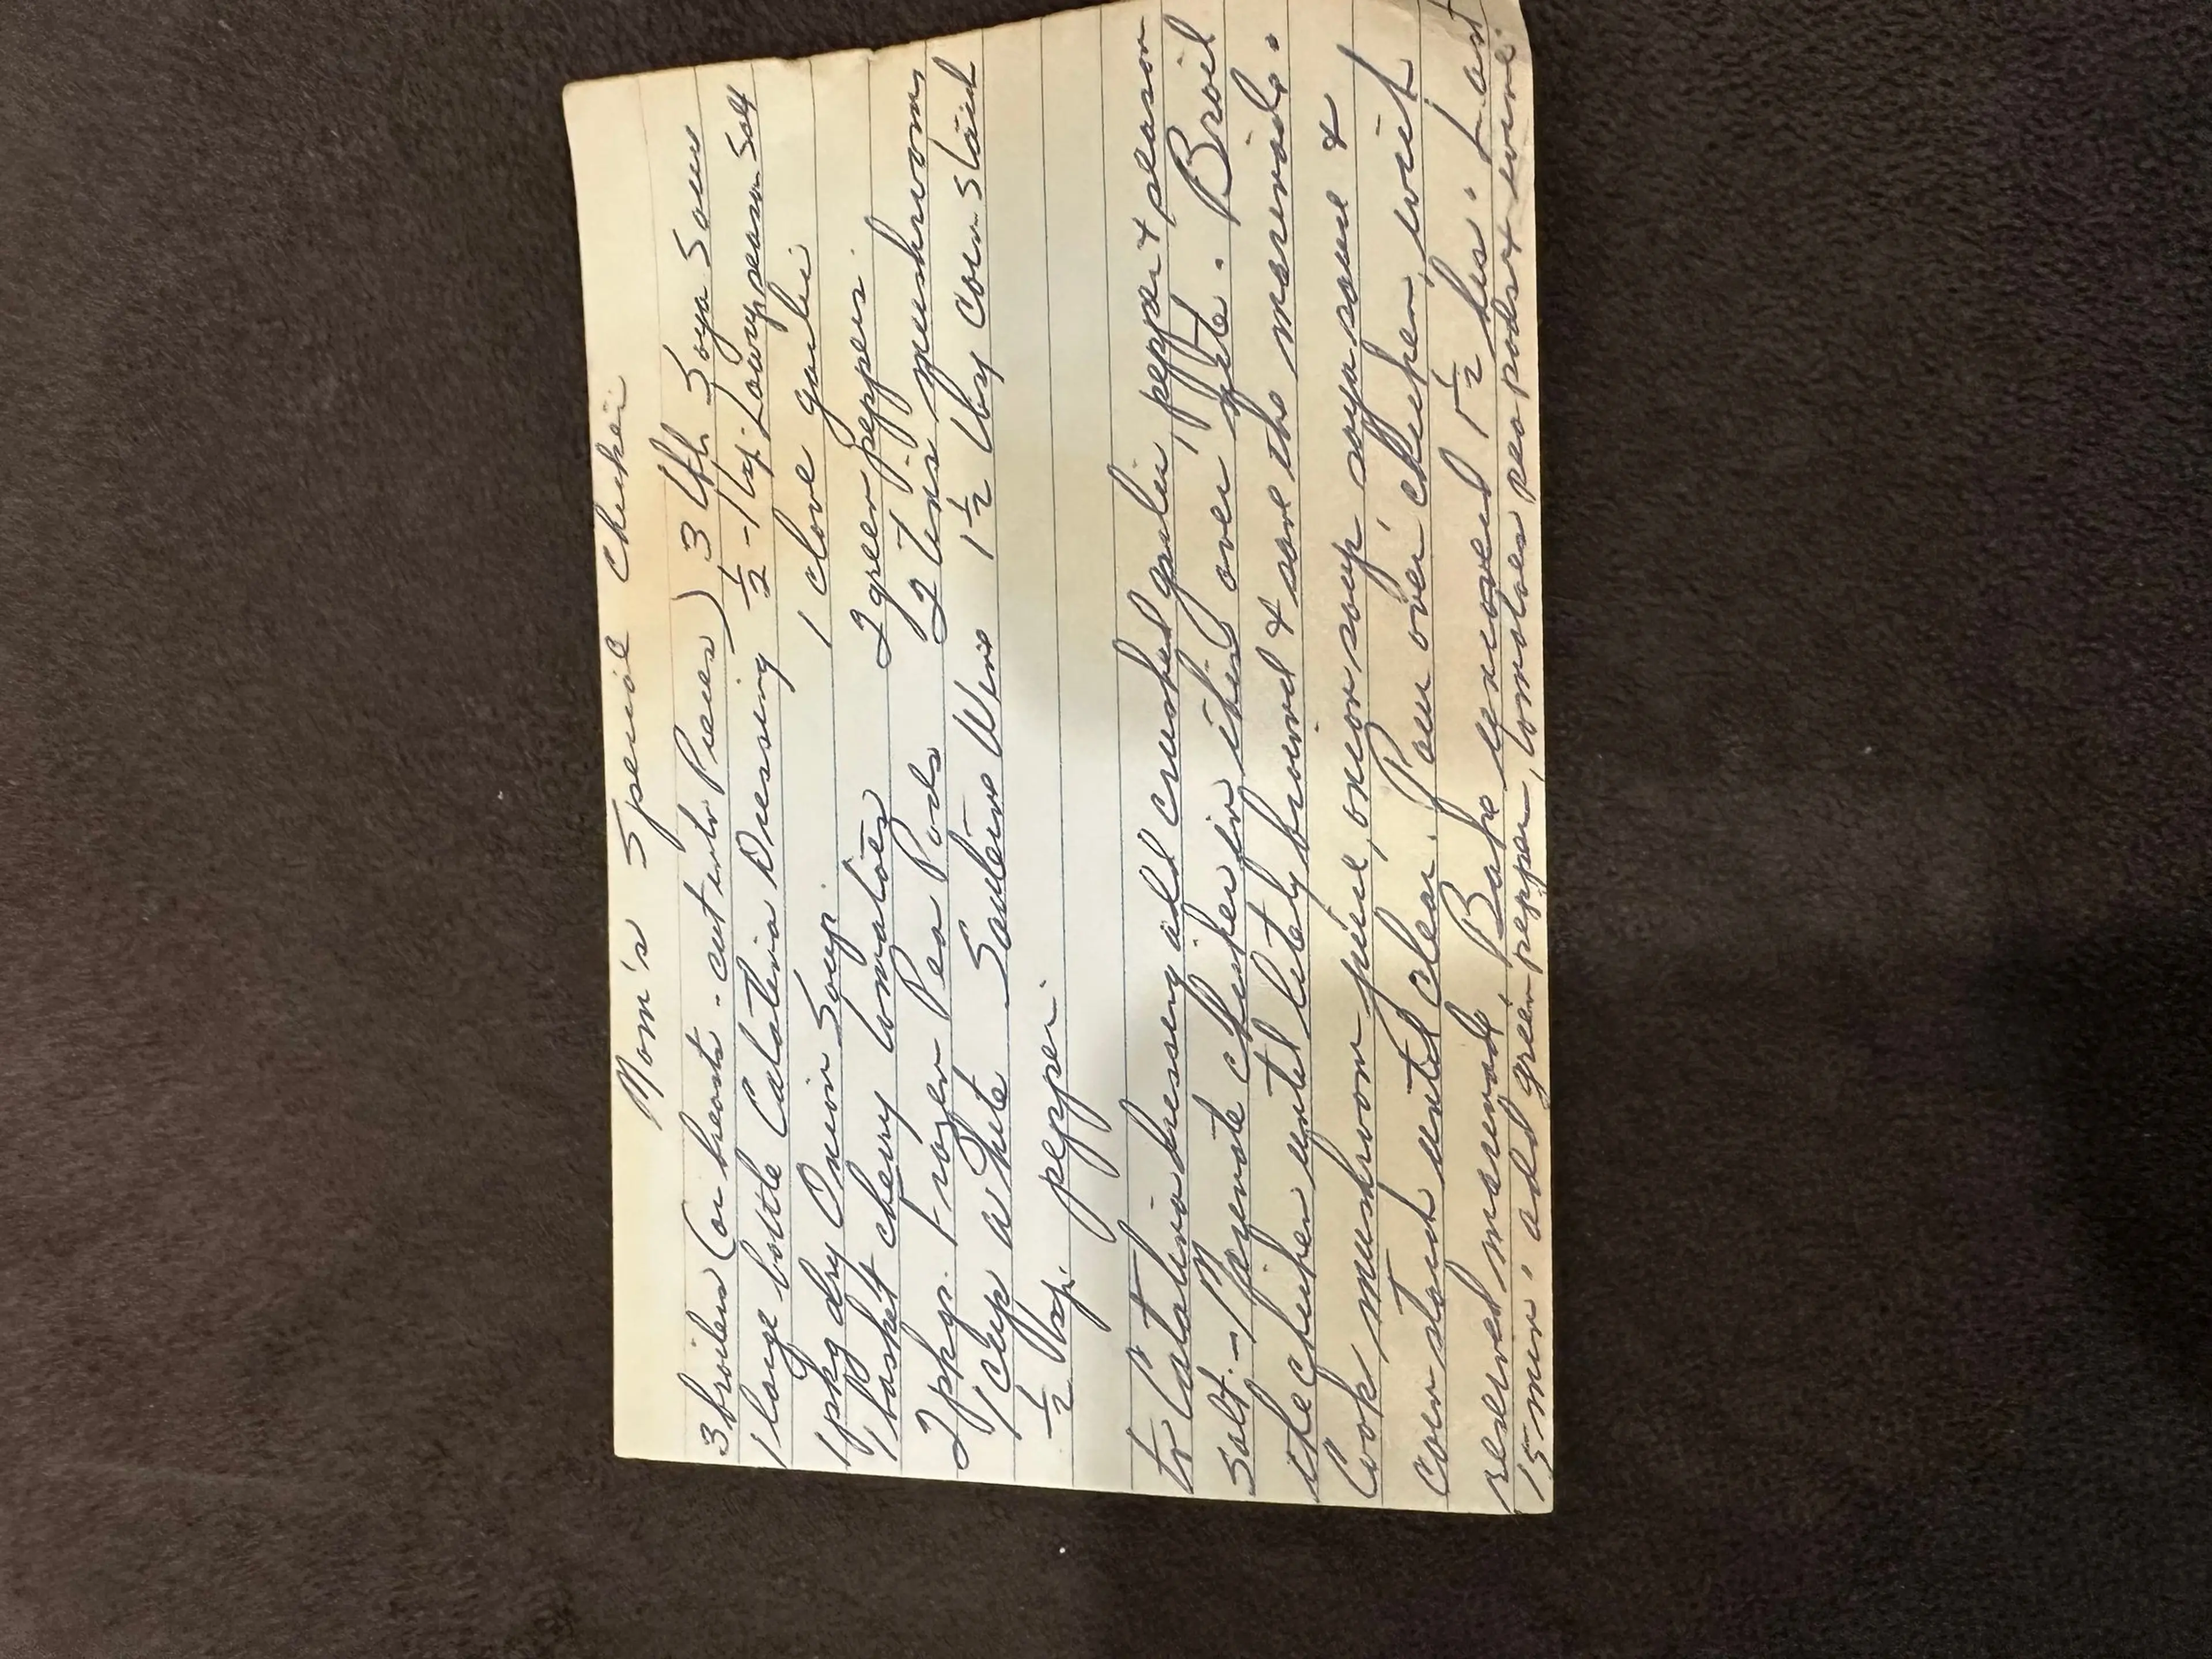 Mom's Special Chicken
3 broilers (or breasts - cut into Pieces) 3 tbl. Soya Sauce
1 large bottle Catalina Dressing ½ - 1 tsp. Lawrys season Salt
1 pkg dry Onion Soup 1 clove garlic
1 basket cherry tomatoes 2 green peppers
2 pkgs. Frozen Pea Pods 2 tins mushrooms
1 cup white Sauterne Wine 1½ tbsp corn starch
½ tsp. pepper
To Catalina dressing add crushed garlic, pepper & season
salt. - Marinate chicken in this over nite. Broil
the chicken until litely browned & save the marinade.
Cook mushroom juice, onion soup, soya sauce &
corn starch until clear. Pour over chicken, with
reserved marinade. Bake uncovered 1½ hrs. Last
15 min. add green pepper, tomatoes pea pods & wine.